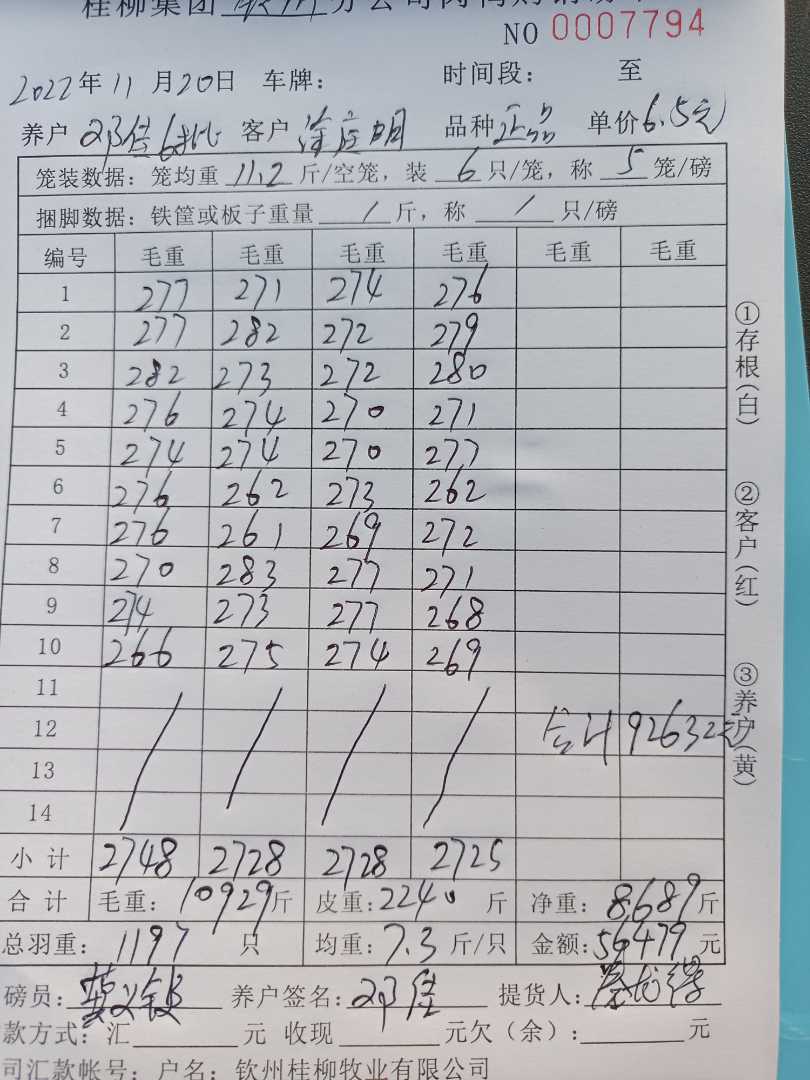 桂柳集团 钦州 分公司肉
NO 0007794
2022年11月20日 车牌: 时间段: 至
养户 邓佳 客户 品种 正品 单价6.5元
笼装数据: 笼均重 11.2 斤/空笼, 装 6 只/笼, 称 5 笼/磅
捆脚数据: 铁筐或板子重量 / 斤, 称 / 只/磅
编号 毛重 毛重 毛重 毛重 毛重 毛重
1 277 271 274 276
2 277 282 272 279
3 282 273 272 280
4 276 274 270 271
5 274 274 270 277
6 276 262 273 262
7 276 261 269 272
8 270 283 277 271
9 274 273 277 268
10 266 275 274 269
11
12 合计92632元
13
14
小计 2748 2728 2728 2725
合计 毛重: 10929斤 皮重: 2240 斤 净重: 8689斤
总羽重: 1197 只 均重: 7.3 斤/只 金额: 56479 元
磅员: 养户签名: 邓佳 提货人:
款方式: 汇 元 收现 元欠(余): 元
司汇款帐号: 户名: 钦州桂柳牧业有限公司
①存根(白)
②客户(红)
③养户(黄)